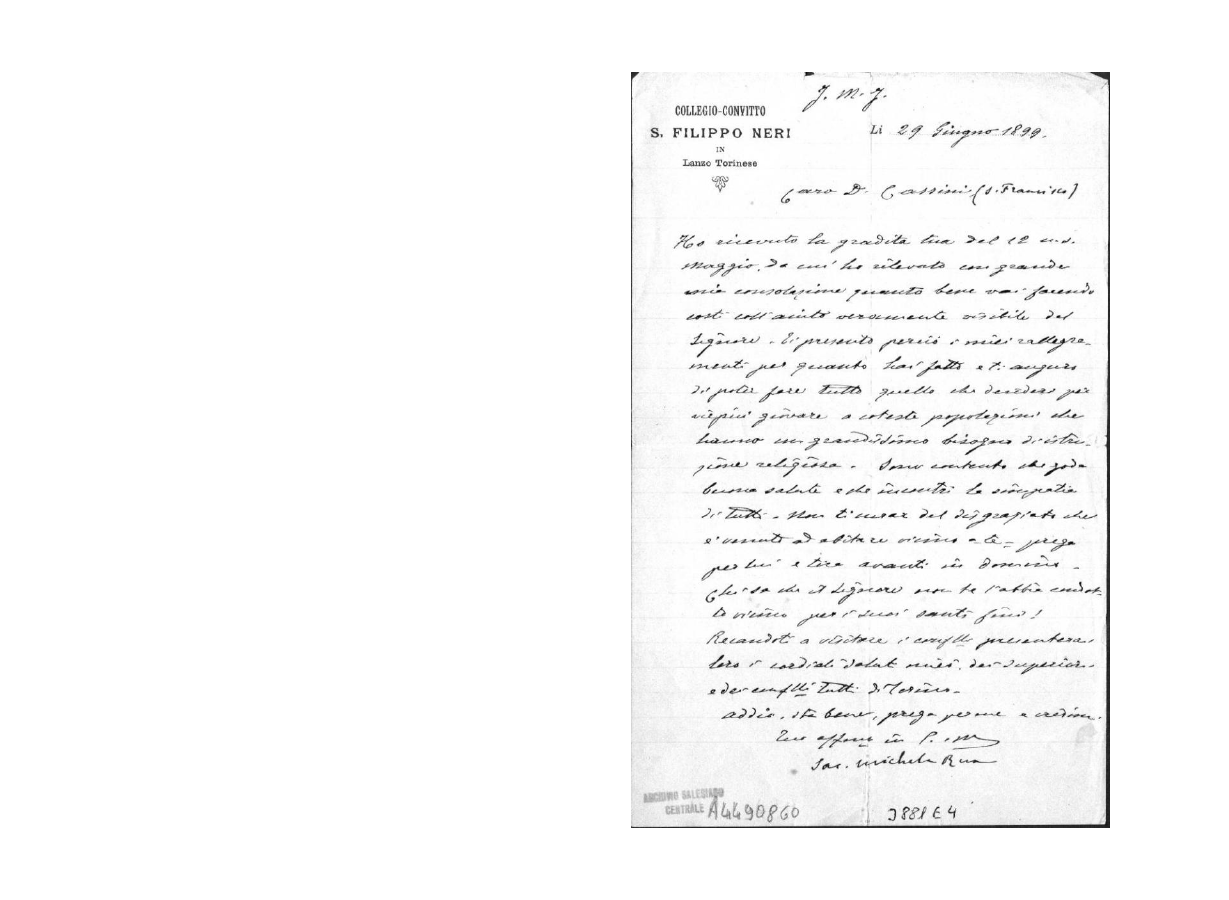 J. M. J.
COLLEGIO-CONVITTO
S. FILIPPO NERI
IN
Lanzo Torinese
Li 29 Giugno 1899.
Caro D. Cassini (S. Francisco)
Ho ricevuto la gradita tua del 12 u.s.
Maggio, da cui ho rilevato con grande
mia consolazione quanto bene vai facendo
costì coll'aiuto veramente visibile del
Signore. Ti presento perciò i miei rallegra-
menti per quanto hai fatto e ti auguro
di poter fare tutto quello che desideri per
viepiù giovare a coteste popolazioni che
hanno un grandissimo bisogno di istru-
zione religiosa. Sono contento che goda
buona salute e che incontri la simpatia
di tutti. Non ti curar del disgraziato che
è venuto ad abitare vicino a te = prega
per lui e tira avanti in Domino.
Chi sa che il Signore non te l'abbia condot-
to vicino per i suoi santi fini!
Recandoti a visitare i conflli presenterai
loro i cordiali saluti miei, dei Superiori
e dei conflli tutti di Torino.
Addio, sta bene, prega per me e credimi
Tuo affmo in G. e M.
Sac. Michele Rua
ARCHIVIO SALESIANO
CENTRALE A4490860
3881 E 4